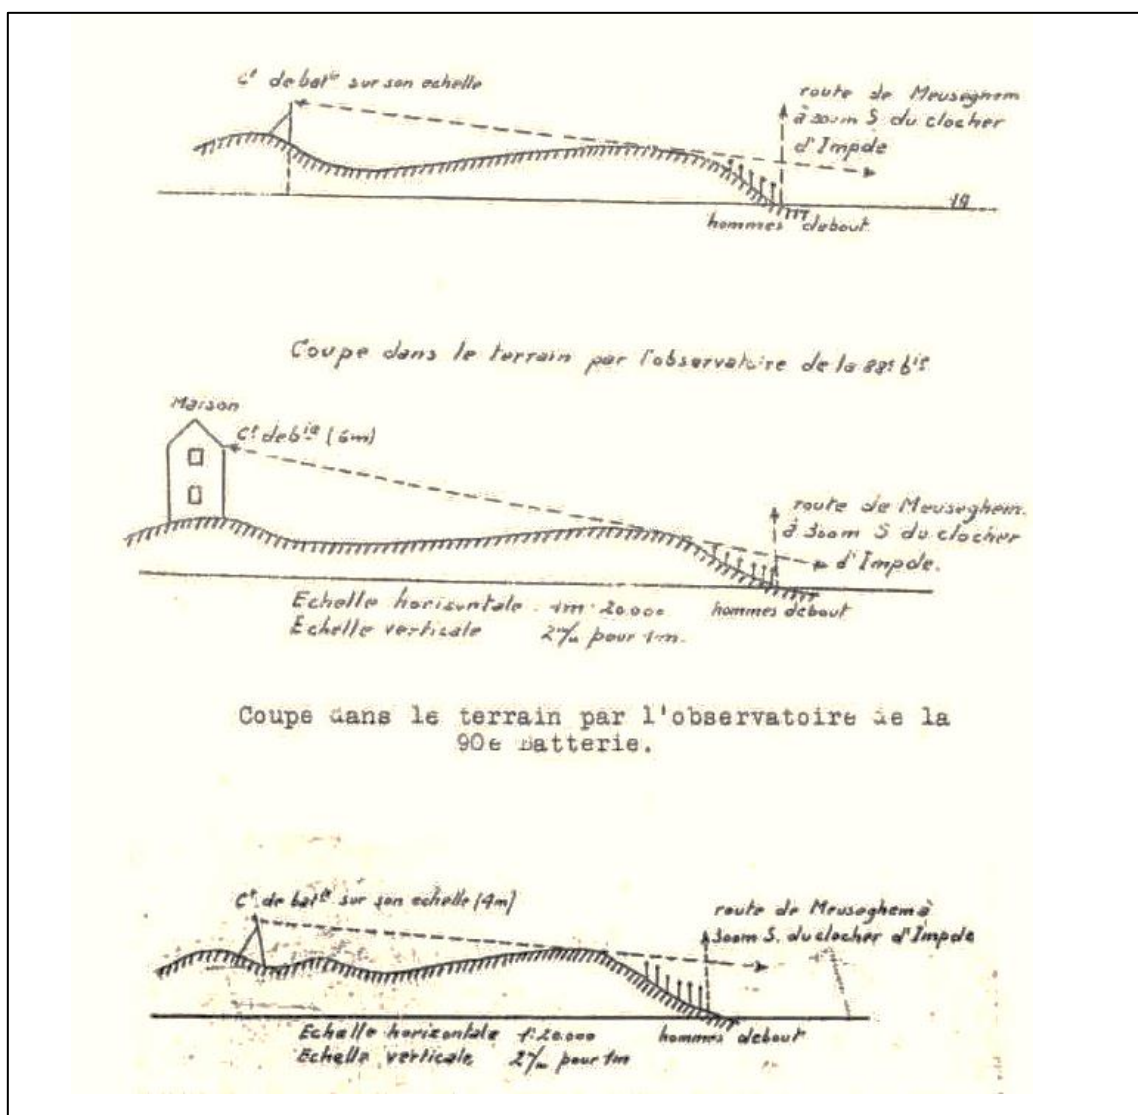 Ct de batie sur son echelle
route de Meuseghem
à 300m S du clocher
d'Impde
19
hommes debout.
Coupe dans le terrain par l'observatoire de la 88e bie
Maison
Ct de bie (6m)
route de Meuseghem.
à 300m S du clocher
d'Impde.
Echelle horizontale 1m: 20.000
hommes debout
Echelle verticale 2m/m pour 1m.
Coupe dans le terrain par l'observatoire de la
90e Batterie.
Ct de batie sur son echelle (4m)
route de Meuseghem à
300m S. du clocher d'Impde
Echelle horizontale 1:20.000
hommes debout
Echelle verticale 2m/m pour 1m